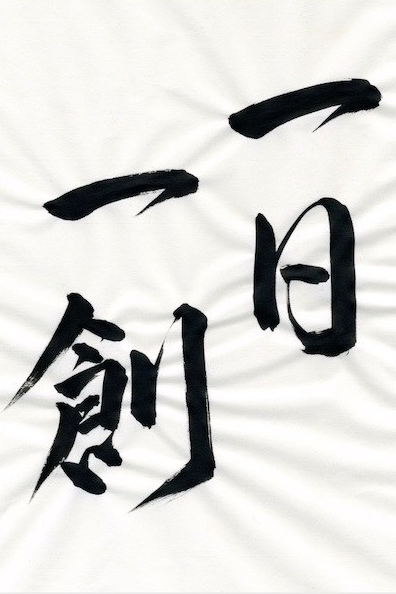 一日
一創